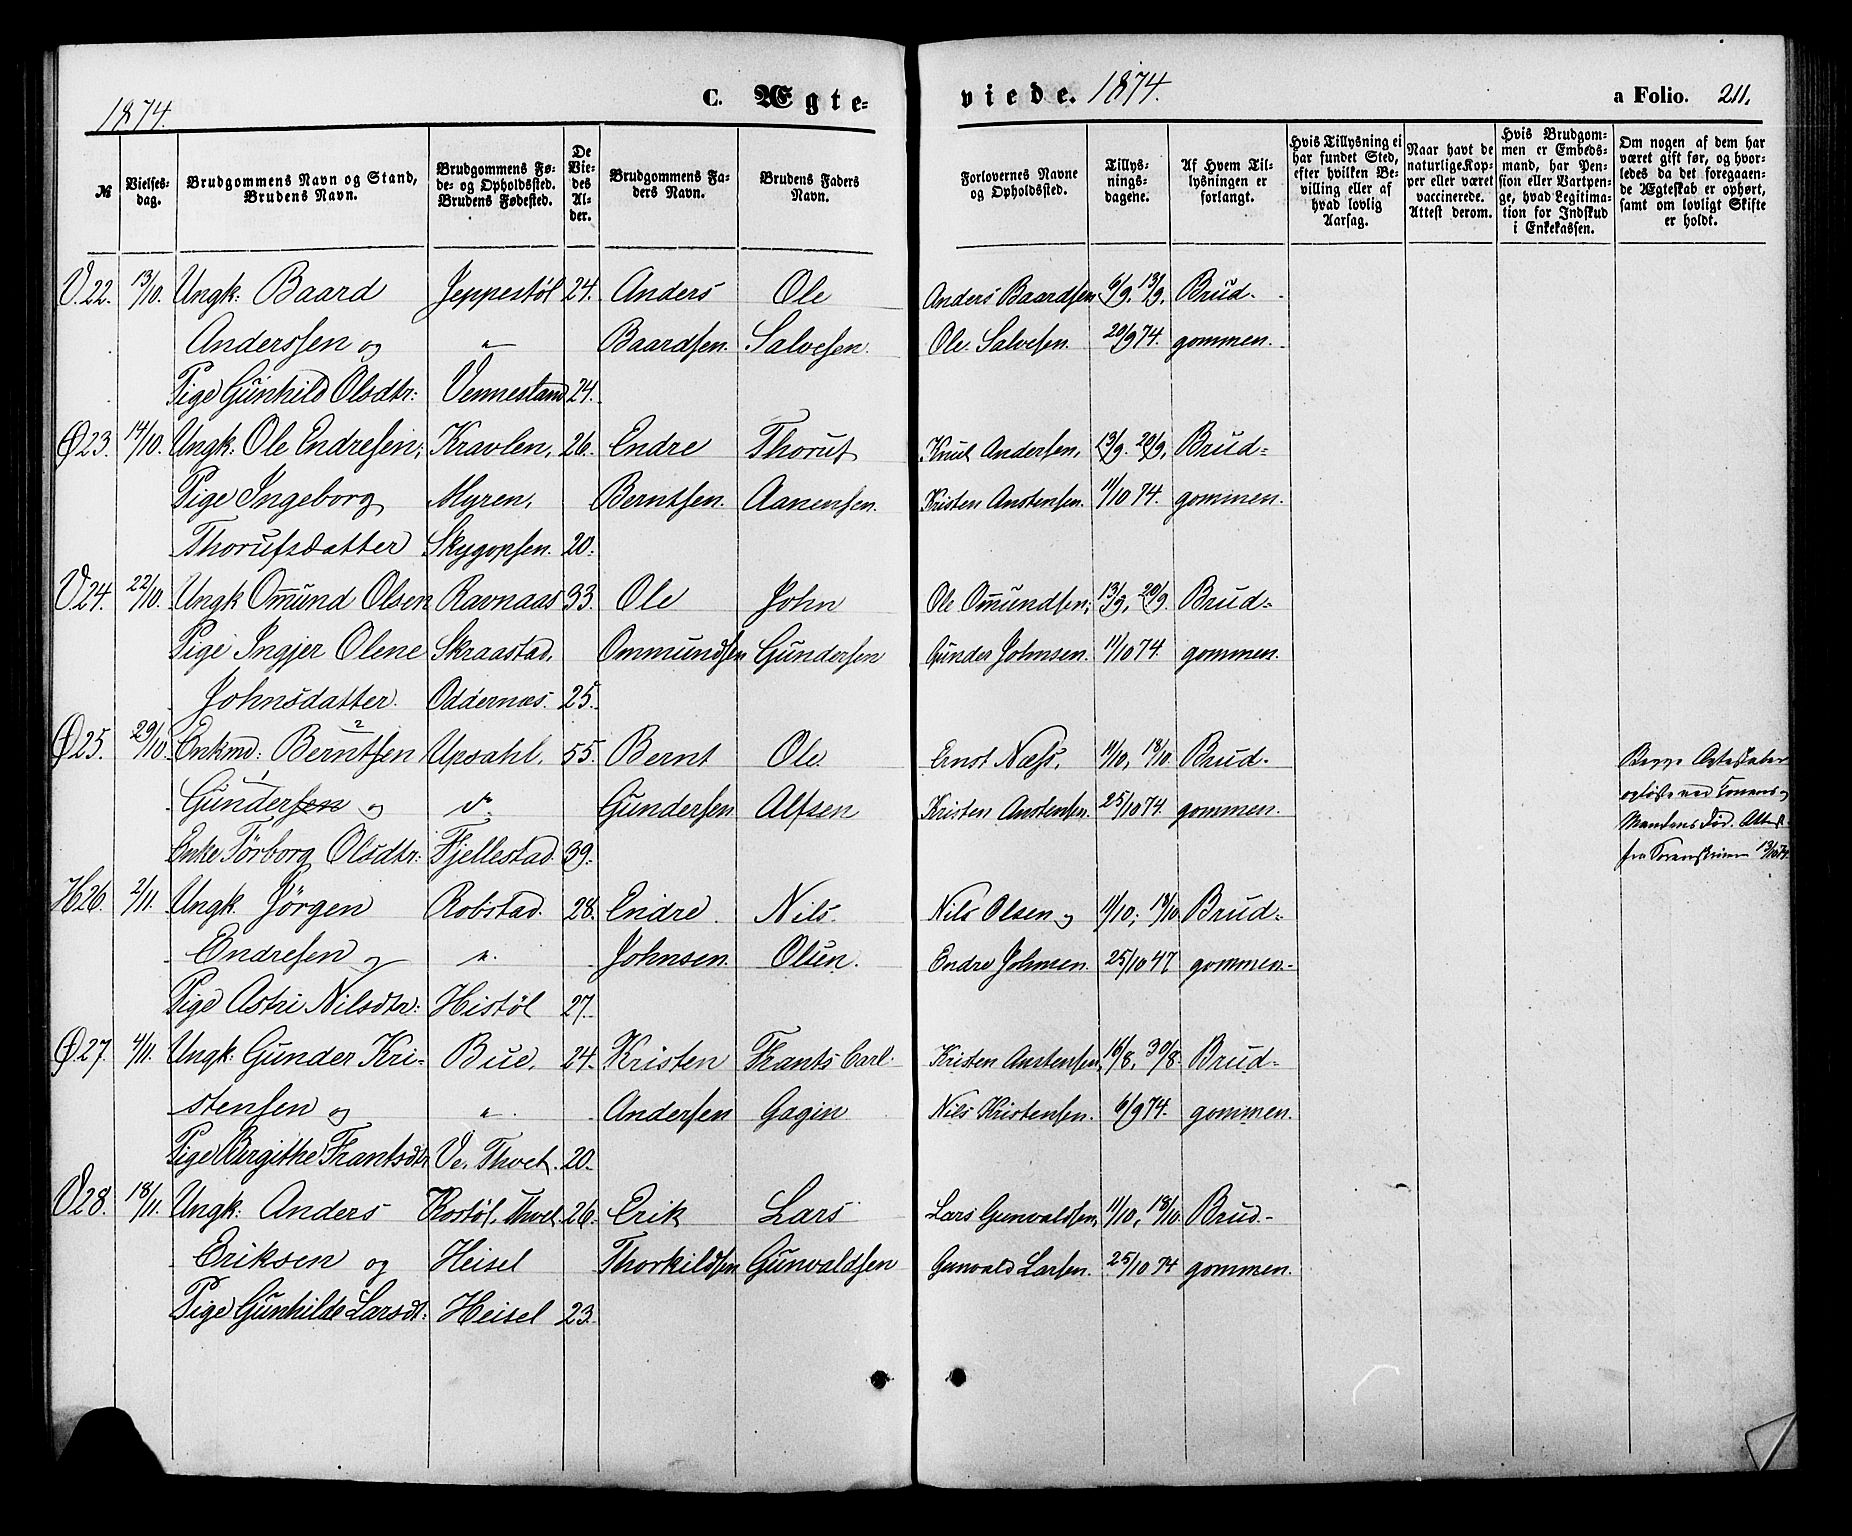 1874.
C. Ægteviede. 1874.
a Folio. 211.
№
Vielsesdag.
Brudgommens Navn og Stand, Brudens Navn.
Brudgommens Føde- og Opholdssted. Brudens Fødested.
De Viedes Alder.
Brudgommens Faders Navn.
Brudens Faders Navn.
Forlovernes Navne og Opholdssted.
Tillysningsdagene.
Af Hvem Tillysningen er forlangt.
Hvis Tillysning ei har fundet Sted, efter hvilken Bevilling eller af hvad lovlig Aarsag.
Naar havt de naturlige Kopper eller været vaccinerede. Attest derom.
Hvis Brudgommen er Embedsmand, har Pension eller Vartpenge, hvad Legitimation for Indskud i Enkekassen.
Om nogen af dem har været gift før, og hvorledes da det foregaaende Ægteskab er ophørt, samt om lovligt Skifte er holdt.
V.22. 13/10. Ungk: Baard Jeppestøl 24. Anders Ole Anders Baardsen 6/9. 13/9. Brud-
Anderssen og " Baardsen. Salvesen. Ole Salvesen. 20/9 74. gommen.
Pige Gunhild Olsdtr: Vennestand 24.
Ø23. 14/10. Ungk: Ole Endresen, Kravlen, 26. Endre Thoruf Knut Andersen, 13/9. 20/9, Brud=
Pige Ingeborg Myren, Berntsen. Aanensen. Kristen Anstensen. 11/10 74. gommen.
Thorufsdatter Skygopsen. 20.
V24. 22/10. Ungk Omund Olsen Ravnaas 33. Ole John Ole Omundsen, 13/9, 20/9. Brud=
Pige Ingjer Olene Skraastad, Ommundsen Gundersen Gunder Johnsen. 11/10 74. gommen.
Johnsdatter. Oddernæs. 25.
Ø25. 29/10. Enkmd: Berntsen 2 Upsahl, 55. Bernt Ole Ernst Næss, 11/10, 18/10. Brud- Begge Ægteskaber
1 Gundersen og do Gundersen Alfsen Kristen Anstensen. 25/10 74. gommen. opløste ved Konens og
Enke Tørborg Olsdtr: Fjellestad 39. Mandens Død. Attest
fra Sorenskriver 13/10 74.
H26. 2/11. Ungk. Jørgen Robstad. 28. Endre. Nils. Nils Olsen og 11/10, 18/10 Brud=
Endresen og ". Johnsen. Olsen. Endre Johnsen. 25/10 47 gommen-
Pige Astri Nilsdtr: Histøl 27.
Ø27. 4/11. Ungk: Gunder Kri- Bue, 24. Kristen Frants Carl Kristen Anstensen, 16/8, 30/8. Brud=
stensen og " Andersen Gagin Nils Kristensen. 6/9 74. gommen.
Pige Birgithe Frantsdtr V. Thvet. 20.
V28. 18/11. Ungk: Anders Kostøl, Thvet 26. Erik Lars Lars Gunvaldsen, 11/10, 18/10 Brud-
Eriksen og Heisel Thorkildsen Gunvaldsen Gunvald Larsen. 25/10 74 gommen.
Pige Gunhilde Larsdt: Heisel 23.